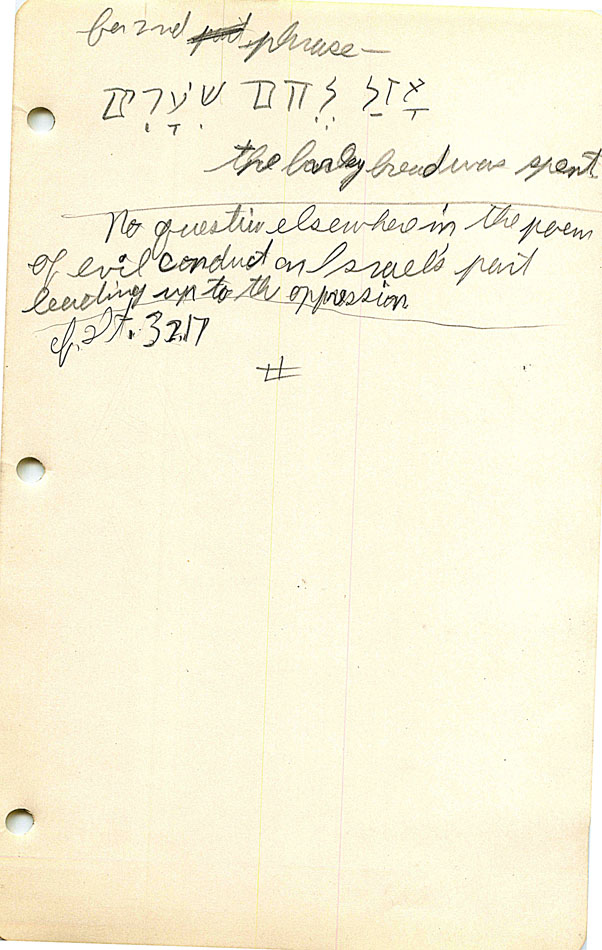 for 2nd phrase—
אָזַל לחם שערים
the barley bread was spent.
No question elsewhere in the poem
of evil conduct on Israel's part
leading up to th oppression
cf. Dt. 32.17
#